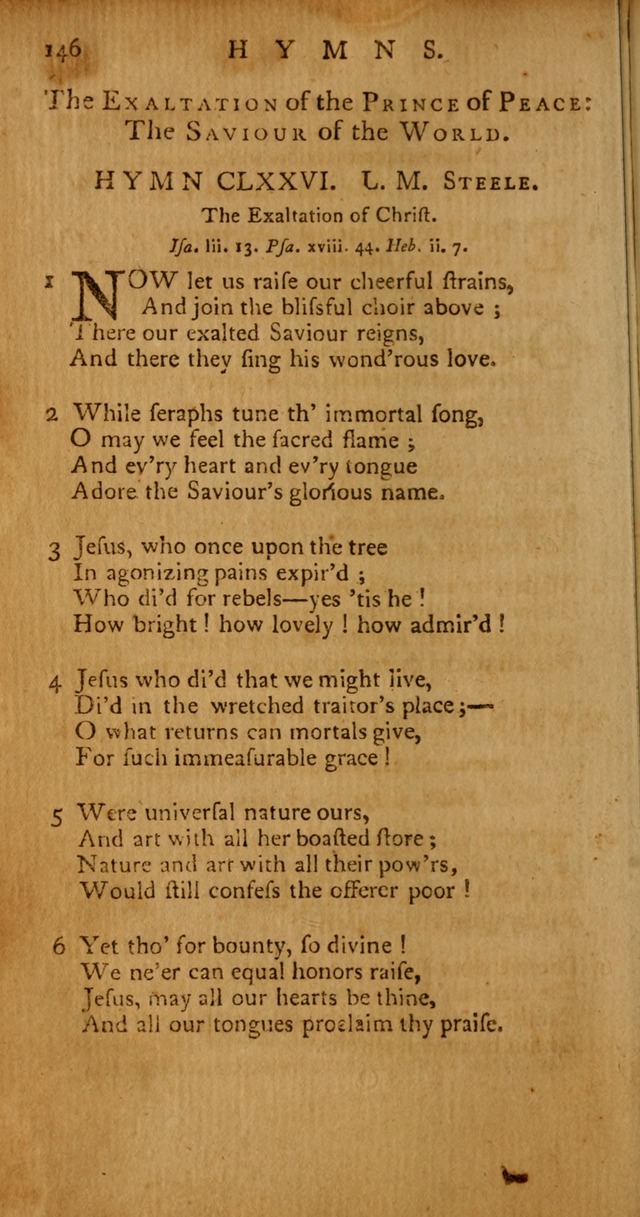 146 HYMNS.
The EXALTATION of the PRINCE of PEACE:
The SAVIOUR of the WORLD.
HYMN CLXXVI. L. M. STEELE.
The Exaltation of Chriſt.
Iſa. lii. 13. Pſa. xviii. 44. Heb. ii. 7.
1 NOW let us raiſe our cheerful ſtrains,
And join the bliſsful choir above ;
There our exalted Saviour reigns,
And there they ſing his wond'rous love.
2 While ſeraphs tune th' immortal ſong,
O may we feel the ſacred flame ;
And ev'ry heart and ev'ry tongue
Adore the Saviour's glorious name.
3 Jeſus, who once upon the tree
In agonizing pains expir'd ;
Who di'd for rebels—yes 'tis he !
How bright ! how lovely ! how admir'd !
4 Jeſus who di'd that we might live,
Di'd in the wretched traitor's place ;—
O what returns can mortals give,
For ſuch immeaſurable grace !
5 Were univerſal nature ours,
And art with all her boaſted ſtore ;
Nature and art with all their pow'rs,
Would ſtill confeſs the offerer poor !
6 Yet tho' for bounty, ſo divine !
We ne'er can equal honors raiſe,
Jeſus, may all our hearts be thine,
And all our tongues proclaim thy praiſe.